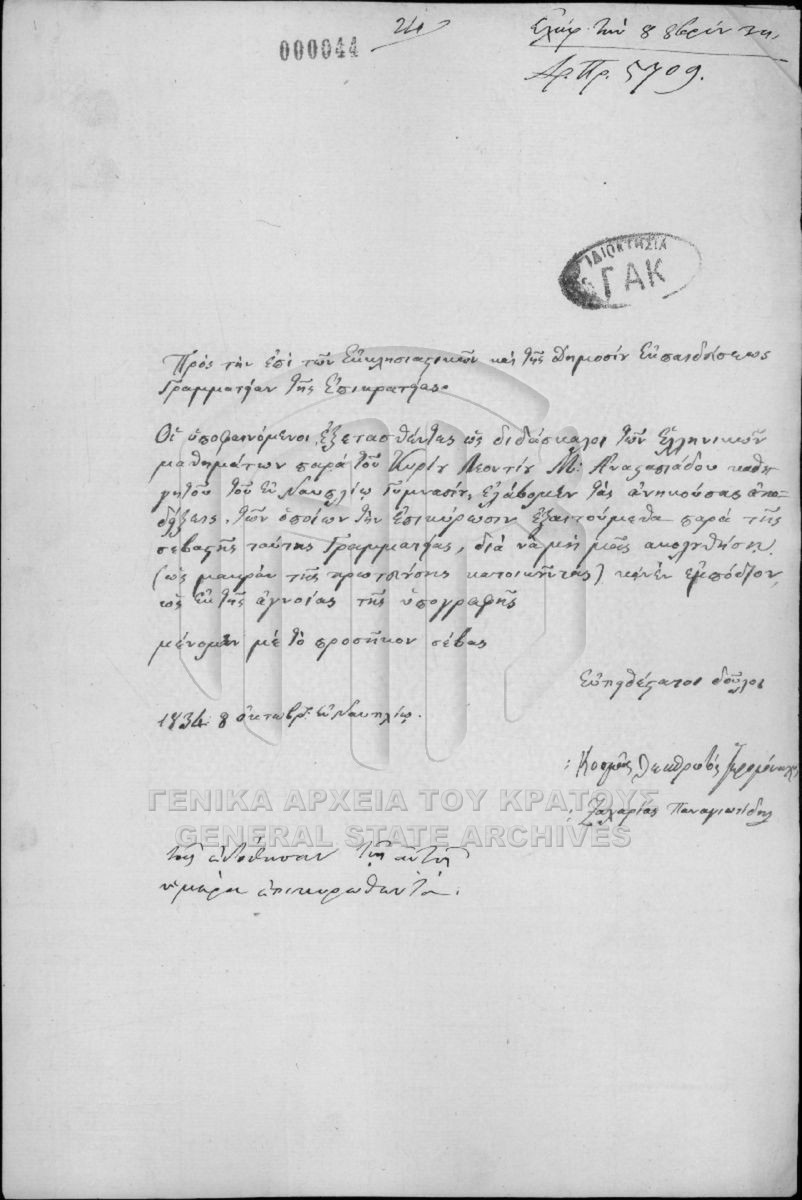 000044
24
Ἐλήφ. τὴν 8 8βρίου 34,
Ἀρ. Πρ. 5709.
ΙΔΙΟΚΤΗΣΙΑ
ΓΑΚ
Πρὸς τὴν ἐπὶ τῶν Ἐκκλησιαστικῶν καὶ τῆς δημοσίου Ἐκπαιδεύσεως
Γραμματείαν τῆς Ἐπικρατείας.
Οἱ ὑποφαινόμενοι ἐξετασθέντες ὡς διδάσκαλοι τῶν Ἑλληνικῶν
μαθημάτων παρὰ τοῦ Κυρίου Λεοντίου Μ: Ἀναστασιάδου καθη-
γητοῦ τοῦ ἐν Ναυπλίῳ Γυμνασίου, ἐλάβομεν τὰς ἀνηκούσας ἀπο-
δείξεις, τῶν ὁποίων τὴν ἐπικύρωσιν ἐξαιτούμεθα παρὰ τῆς
σεβαστῆς ταύτης Γραμματείας, διὰ νὰ μὴ μᾶς ἀκολουθήσῃ
(ὡς μακρὰν τῆς πρωτευούσης κατοικοῦντας) κἀνὲν ἐμπόδιον,
ὡς ἐκ τῆς ἀγνοίας τῆς ὑπογραφῆς
μένομεν μὲ τὸ προσῆκον σέβας
Εὐπειθέστατοι δοῦλοι
1834: 8 ὀκτωβρ: ἐν Ναυπλίῳ.
: Κοσμᾶς Ἱερομόναχος
: Ζαχαρίας Παναγιωτίδης
ΓΕΝΙΚΑ ΑΡΧΕΙΑ ΤΟΥ ΚΡΑΤΟΥΣ
GENERAL STATE ARCHIVES
τοῖς ἐδόθησαν τῇ αὐτῇ
ἡμέρᾳ ἐπικυρωθέντα.